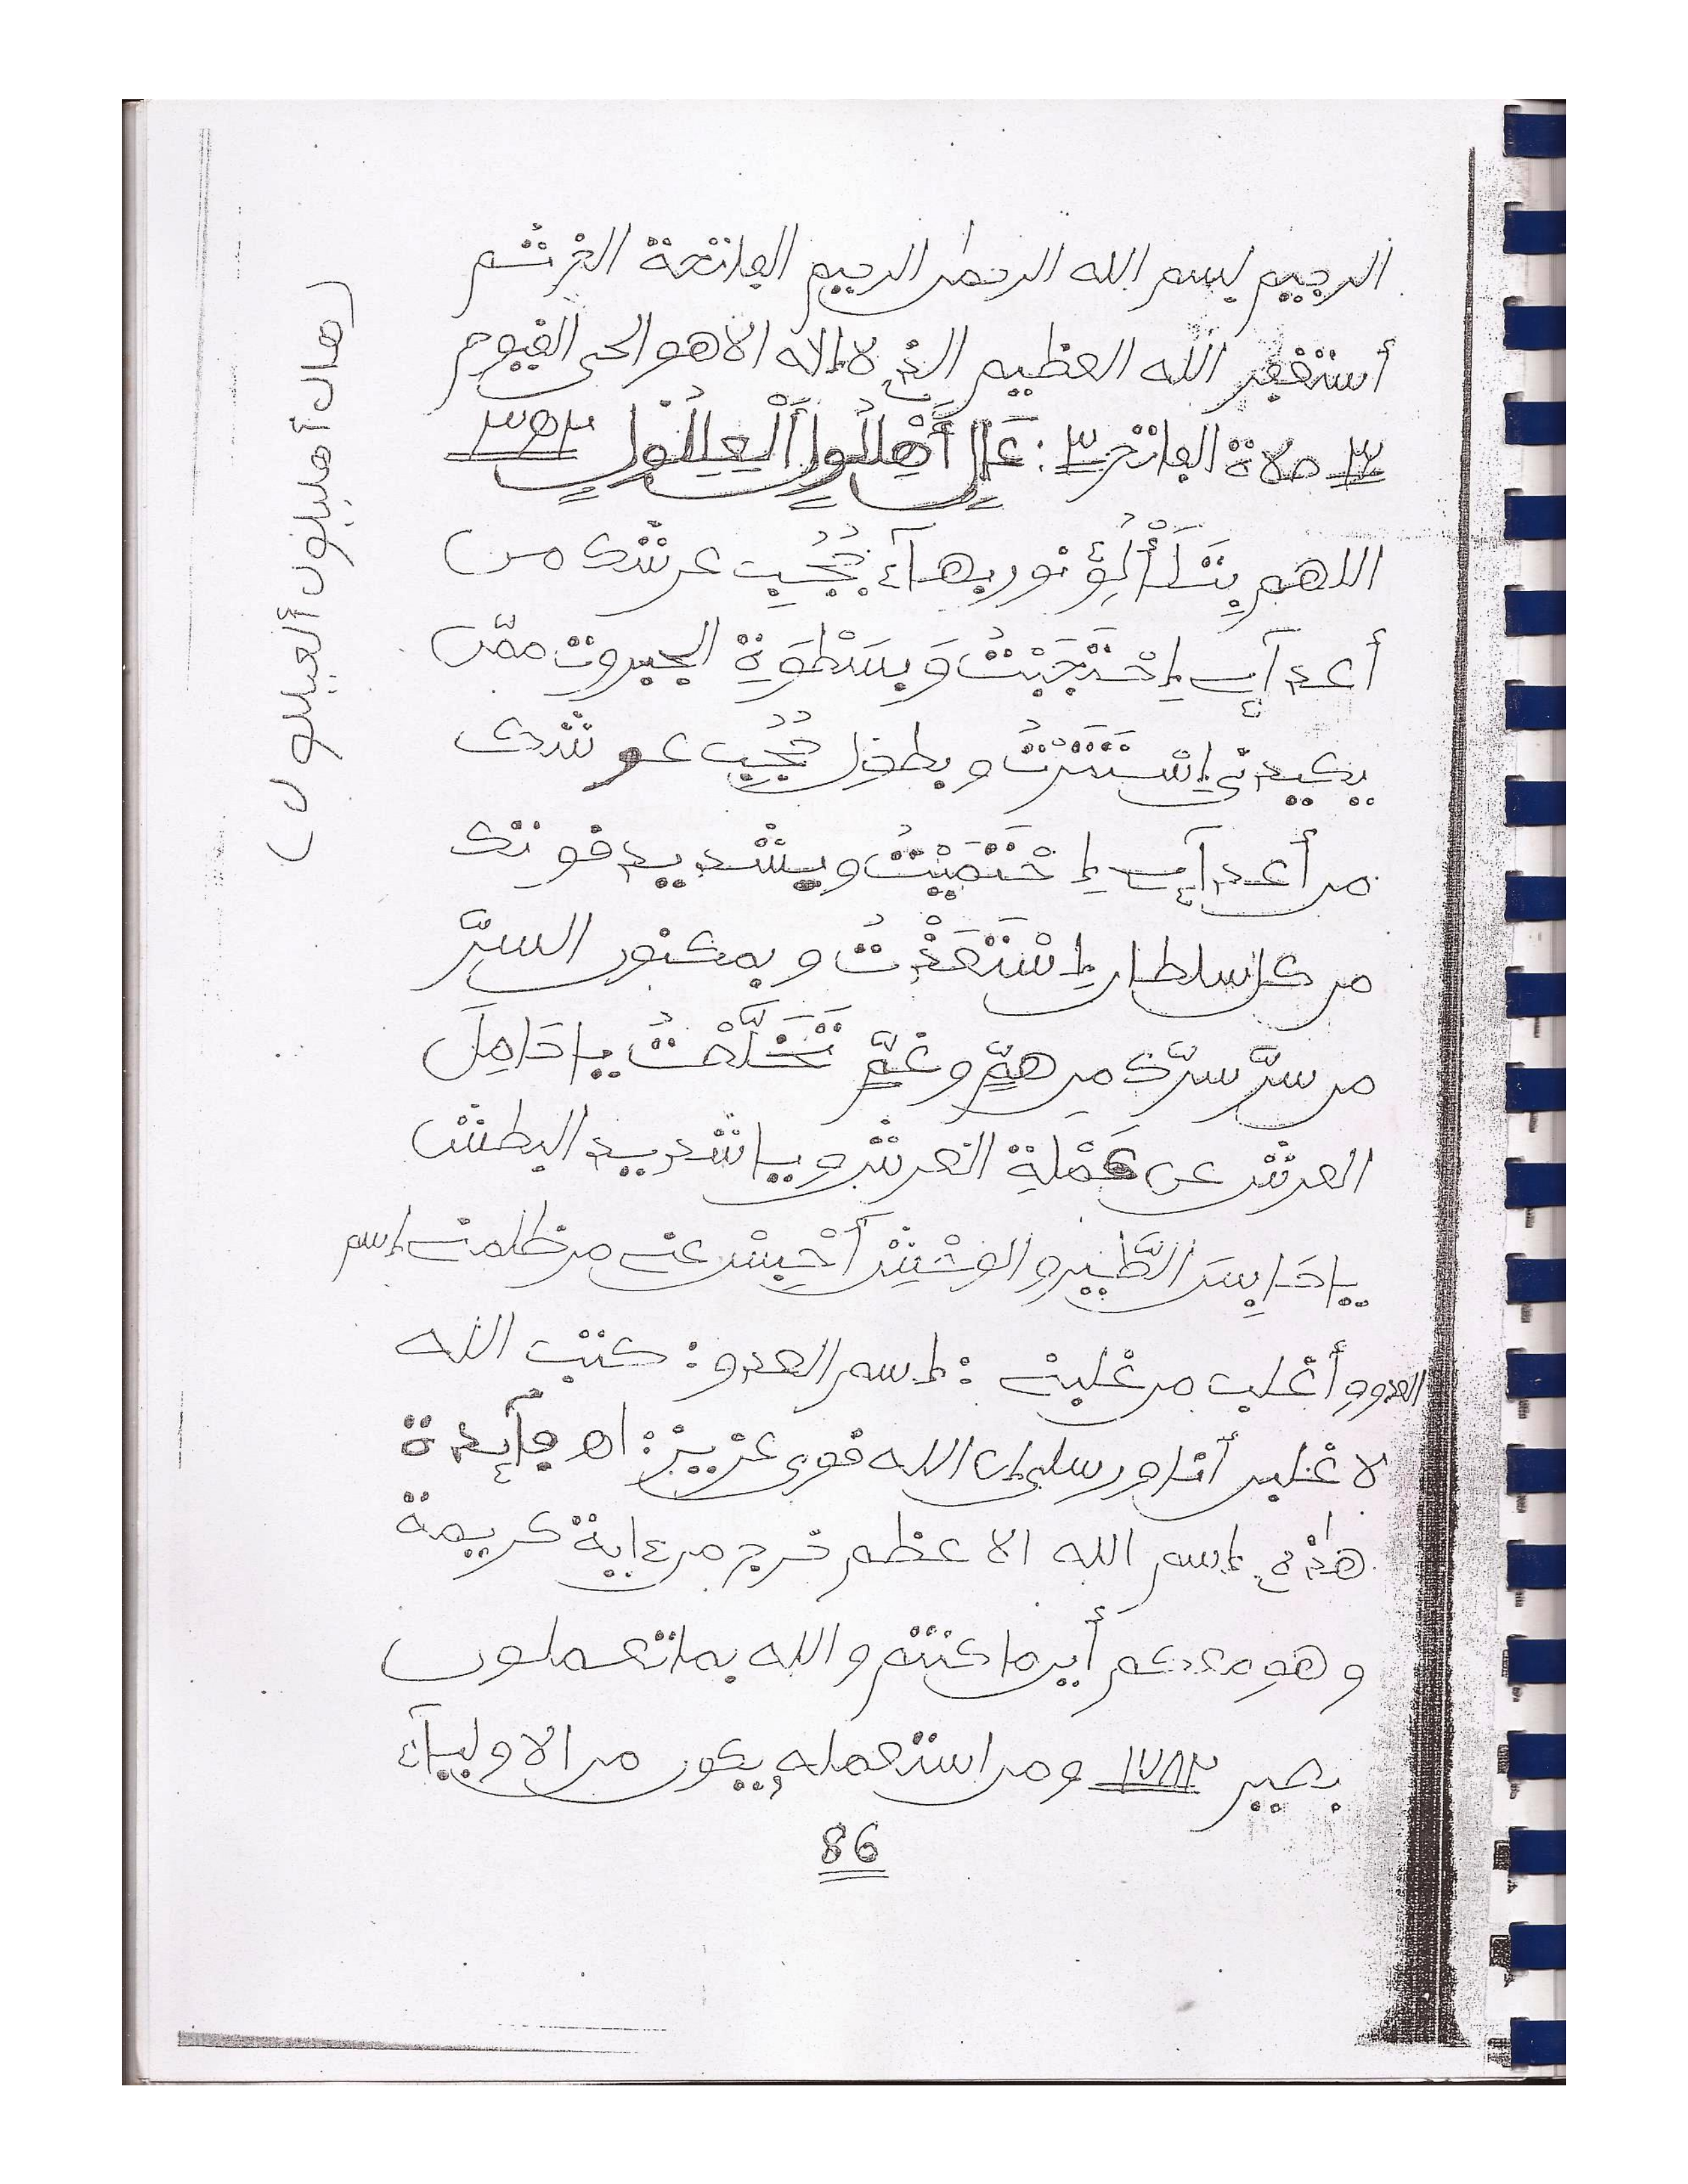 الرجيم بسم الله الرحمٰن الرحيم الفاتحة الخ ثم
أستغفر الله العظيم الذي لا إلاه الا هو الحي القيوم
٣ صلاة الفاتح ٣ :
اللهم بِتَلَأْلُؤِ نور بهآء حُجُبِ عرشك من
أعدآءي إِحْتَجَبْتُ وَبِسَطْوَةِ الجبروت ممّن
يكيدني إِسْتَتَرْتُ و بطول حُجُبِ عو شدك
من أعدآءي إِحْتَمَيْتُ وبشديد قوتك
من كل سلطان إِسْتَعَذْتُ و بمكنون السرَّ
من سرَّ سرَّك من همٍّ و غمٍّ تَخَلَّصْتُ يا حَامِلَ
العرش عن حَمَلَةِ العرش ويا شديد البطش
يا حَابِسَ الطَّيْرِ و الوَحْشِ أحْبِسْ عني من ظلمني إسم
العدو و أغلب من غلبني : إسم العدو : كتب الله
لا غلبن أنا ورسلي إن الله قوي عزيز : اهـ فآئدة
هٰذه إسم الله الاعظم خرج من ءاية كريمة
وهو معكم أين ما كنتم والله بما تعملون
بصير ١٧٨٢ ومن استعمله يكون من الاوليآء
86
(هال أهليلون ألعيللول)